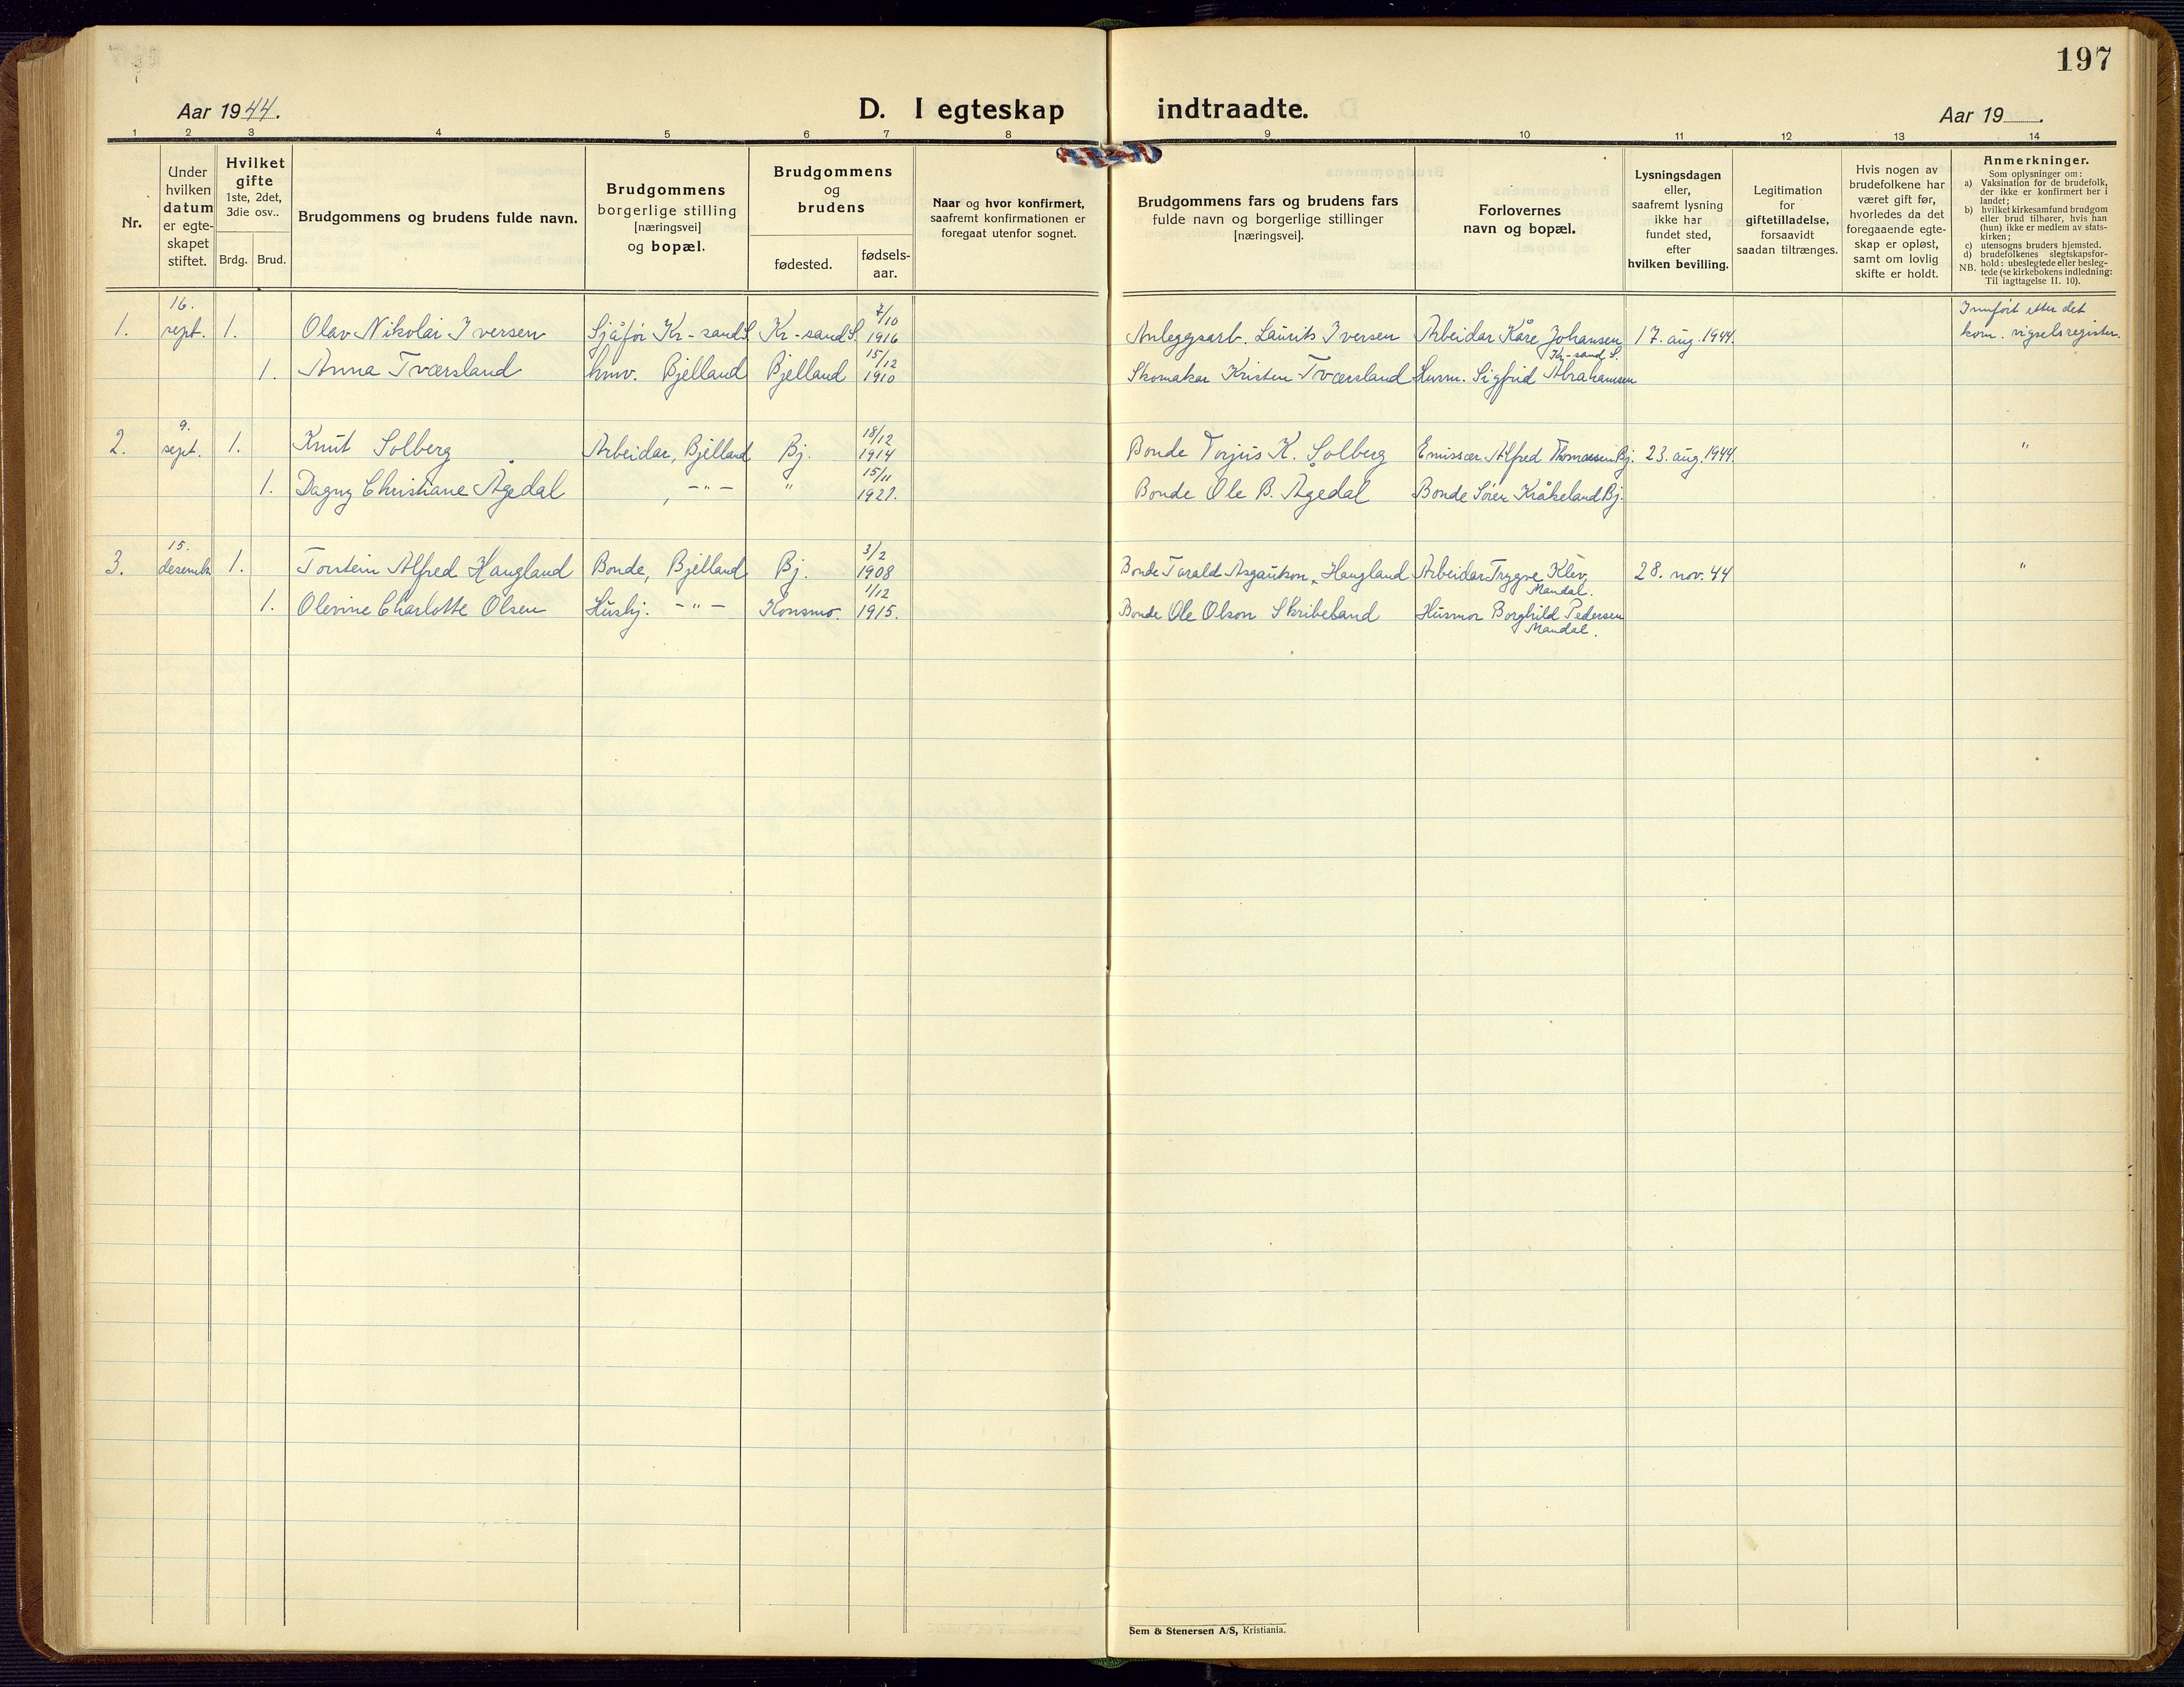 197
Aar 1944.
D. I egteskap indtraadte.
Aar 19 .
1 2 3 4 5 6 7 8 9 10 11 12 13 14
Nr.
Under
hvilken
datum
er egte-
skapet
stiftet.
Hvilket
gifte
1ste, 2det,
3die osv..
Brdg. Brud.
Brudgommens og brudens fulde navn.
Brudgommens
borgerlige stilling
[næringsvei]
og bopæl.
Brudgommens
og
brudens
fødested.
fødsels-
aar.
Naar og hvor konfirmert,
saafremt konfirmationen er
foregaat utenfor sognet.
Brudgommens fars og brudens fars
fulde navn og borgerlige stillinger
[næringsvei].
Forlovernes
navn og bopæl.
Lysningsdagen
eller,
saafremt lysning
ikke har
fundet sted,
efter
hvilken bevilling.
Legitimation
for
giftetilladelse,
forsaavidt
saadan tiltrænges.
Hvis nogen av
brudefolkene har
været gift før,
hvorledes da det
foregaaende egte-
skap er opløst,
samt om lovlig
skifte er holdt.
Anmerkninger.
Som oplysninger om:
a) Vaksination for de brudefolk,
der ikke er konfirmert her i
landet;
b) hvilket kirkesamfund brudgom
eller brud tilhører, hvis han
(hun) ikke er medlem av stats-
kirken;
c) utensogns bruders hjemsted.
d) brudefolkenes slegtskapsfor-
hold: ubeslegtede eller besleg-
NB. tede (se kirkebokens indledning:
Til iagttagelse II. 10).
16. 7/10 Innført etter det
1. sept. 1. Olav Nikolai Iversen Sjåfør Kr-sand S. Kr-sand S. 1916 Anleggsarb. Laurits Iversen Arbeidar Kåre Johansen 17. aug. 1944. kom. vigselsregister.
15/12 Kr-sand S.
1. Anna Tværsland hmv. Bjelland Bjelland 1910 Skomakar Kristen Tværsland Husm. Sigfrid Abrahamsen
9. 18/12
2. sept. 1. Knut Solberg Arbeidar, Bjelland Bj. 1914 Bonde Torjus K. Solberg Emissær Alfred Thomassen Bj. 23. aug. 1944. "
15/11
1. Dagny Christiane Ågedal , -"- " 1921. Bonde Ole B. Ågedal Bonde Søren Kråkeland Bj.
15. 3/2
3. desembr. 1. Torstein Alfred Haugland Bonde, Bjelland Bj. 1908 Bonde Tarald Asgautson Haugland Arbeidar Trygve Klev, 28. nov. 44 "
1/12 Mandal.
1. Olevine Charlotte Olsen Hushj. -"- Konsmo. 1915. Bonde Ole Olson Skribeland Husmor Borghild Pedersen
Mandal.
Sem & Stenersen A/S, Kristiania.